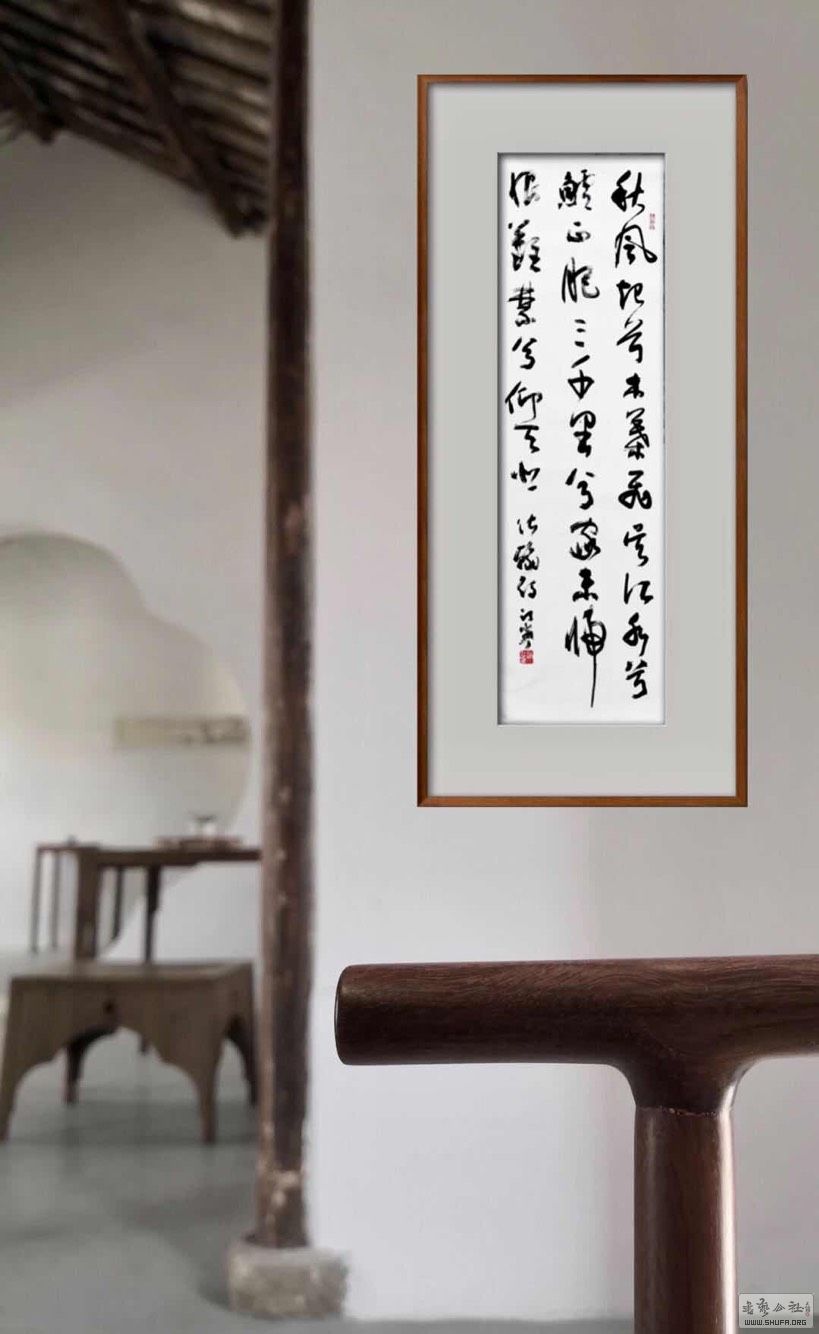 秋風起兮木葉飛吳江水兮
鱸正肥三千里兮家未歸
恨難禁兮仰天悲 張翰詩
書藝公社
WWW.SHUFA.ORG